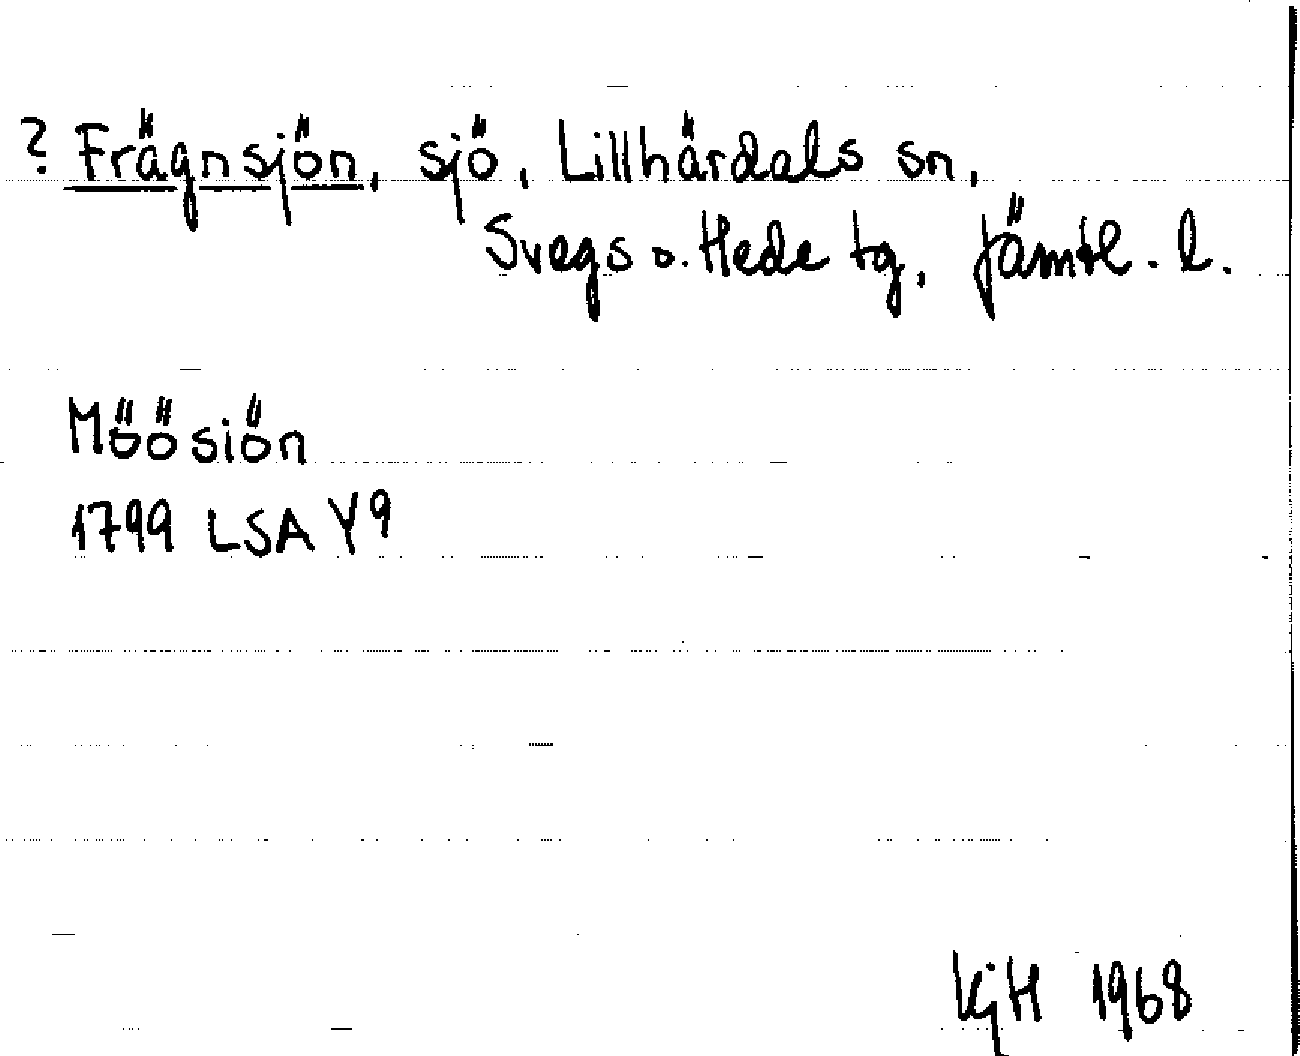 ? Frägnsjön, sjö, Lillhärdals sn,
Svegs o. Hede tg, Jämtl. l.
Möösiön
1799 LSA Y9
KjH 1968